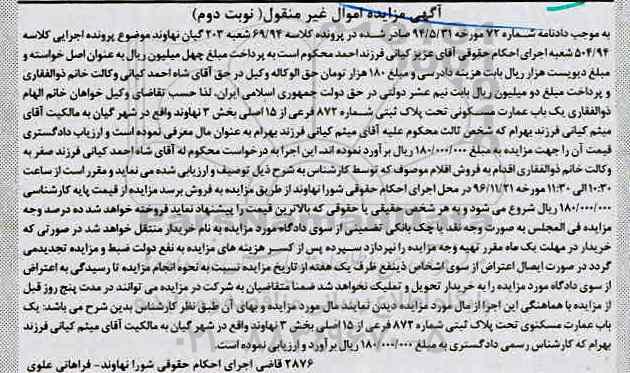 آگهی مزایده اموال غیر منقول( نوبت دوم)
به موجب دادنامه شماره ۷۲ مورخه ۹۴/۵/۳۱ صادر شده در پرونده کلاسه ۶۹/۹۴ شعبه ۲۰۳ گیان نهاوند موضوع پرونده اجرایی کلاسه
۵۰۴/۹۴ شعبه اجرای احکام حقوقی آقای عزیز کیانی فرزند احمد محکوم است به پرداخت مبلغ چهل میلیون ریال به عنوان اصل خواسته و
مبلغ دویست هزار ریال بابت هزینه دادرسی و مبلغ ۱۸۰ هزار تومان حق الوکاله وکیل در حق آقای شاه احمد کیانی وکالت خانم ذوالفقاری
و پرداخت مبلغ دو میلیون ریال بابت نیم عشر دولتی در حق دولت جمهوری اسلامی ایران، لذا حسب تقاضای وکیل خواهان خانم الهام
ذوالفقاری یک باب عمارت مسکونی تحت پلاک ثبتی شماره ۸۷۲ فرعی از ۱۵ اصلی بخش ۳ نهاوند واقع در شهر گیان به مالکیت آقای
میثم کیانی فرزند بهرام که شخص ثالث محکوم علیه آقای میثم کیانی فرزند بهرام به عنوان مال معرفی نموده است و ارزیاب دادگستری
قیمت آن را جهت مزایده به مبلغ ۱۸۰/۰۰۰/۰۰۰ ریال برآورد نموده اند، این اجرا به درخواست محکوم له آقای شاه احمد کیانی فرزند صفر به
وکالت خانم ذوالفقاری اقدام به فروش اقلام موصوف که توسط کارشناس به شرح ذیل توصیف و ارزیابی شده می نماید و مقرر است از ساعت
۱۰:۳۰ الی ۱۱:۳۰ مورخه ۹۶/۱۱/۲۱ در محل اجرای احکام حقوقی شورا نهاوند از طریق مزایده به فروش برسد مزایده از قیمت پایه کارشناسی
۱۸۰/۰۰۰/۰۰۰ ریال شروع می شود و به هر شخص حقیقی یا حقوقی که بالاترین قیمت را پیشنهاد نماید فروخته خواهد شد ده درصد وجه
مزایده فی المجلس به صورت وجه نقد یا چک بانکی تضمینی از سوی دادگاه مورد مزایده به نام خریدار منتقل خواهد شد در صورتی که
خریدار در مهلت یک ماه مقرر تهیه وجه مزایده را نپردازد سپرده پس از کسر هزینه های مزایده به نفع دولت ضبط و مزایده تجدیدمی
گردد در صورت ایصال اعتراض از سوی اشخاص ذینفع ظرف یک هفته از تاریخ مزایده نسبت به نحوه انجام مزایده تا رسیدگی به اعتراض
از سوی دادگاه مورد مزایده را به خریدار تحویل و تملیک نخواهد شد ضمنا متقاضیان به شرکت در مزایده می توانند در مدت پنج روز قبل
از مزایده با هماهنگی این اجرا از مال مورد مزایده دیدن نمایند مال مورد مزایده و بهای آن طبق نظر کارشناس بدین شرح می باشد: یک
باب عمارت مسکونی تحت پلاک ثبتی شماره ۸۷۲ فرعی از ۱۵ اصلی بخش ۳ نهاوند واقع در شهر گیان به مالکیت آقای میثم کیانی فرزند
بهرام که کارشناس رسمی دادگستری به مبلغ ۱۸۰/۰۰۰/۰۰۰ ریال برآورد و ارزیابی نموده است.
۲۸۷۶ قاضی اجرای احکام حقوقی شورا نهاوند- فراهانی علوی